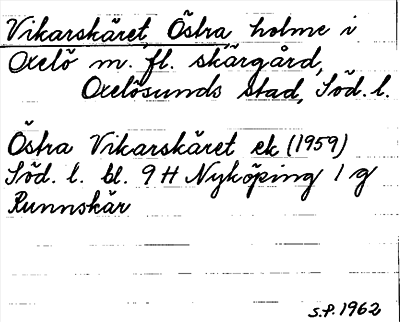 Vikarskäret, Östra holme i
Oxelö m. fl. skärgård,
Oxelösunds stad, Söd. l.
Östra Vikarskäret ek (1959)
Söd. l. bl. 9 H Nyköping 1 g
Runnskär
S.P. 1962